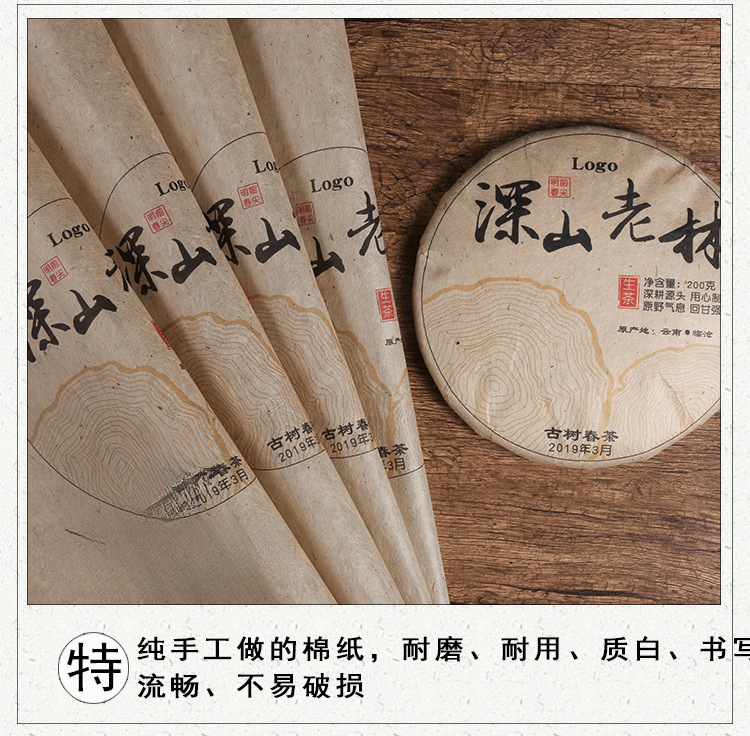 Logo
明前
春尖
深山
Logo
明前
春尖
深山
古树春茶
2019年3月
Logo
明前
春尖
深山
古树春茶
2019年3月
Logo
山老
生茶
春茶
年3月
Logo
明前
春尖
深山老林
生茶
净含量：200克
深耕源头 用心制
原野气息 回甘强
原产地：云南·临沧
古树春茶
2019年3月
特
纯手工做的棉纸，耐磨、耐用、质白、书写
流畅、不易破损